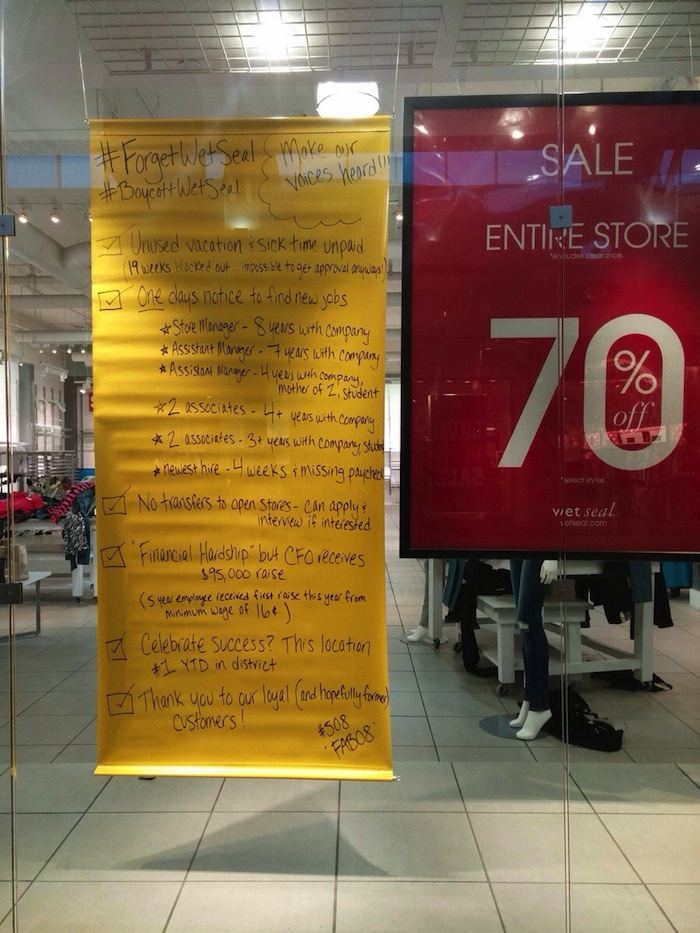 #ForgetWetSeal
#BoycottWetSeal
Make our
voices heard!!!
Unused vacation & sick time unpaid
(19 weeks blacked out... impossible to get approval anyways!)
One days notice to find new jobs
★ Store Manager - 8 years with company
★ Assistant Manager - 7 years with company
★ Assistant Manager - 4 years with company,
mother of 2, student
★ 2 associates - 4+ years with company
★ 2 associates - 3+ years with company,
★ newest hire - 4 weeks & missing paycheck
No transfers to open stores - can apply &
interview if interested
"Financial Hardship" but CFO receives
$95,000 raise
(5 year employee received first raise this year from
minimum wage of 16¢)
Celebrate success? This location
#1 YTD in district
Thank you to our loyal (and hopefully former)
customers!
#508
FAB08
SALE
ENTIRE STORE
*excludes clearance.
70%
off
*select styles.
wet seal.
wetseal.com